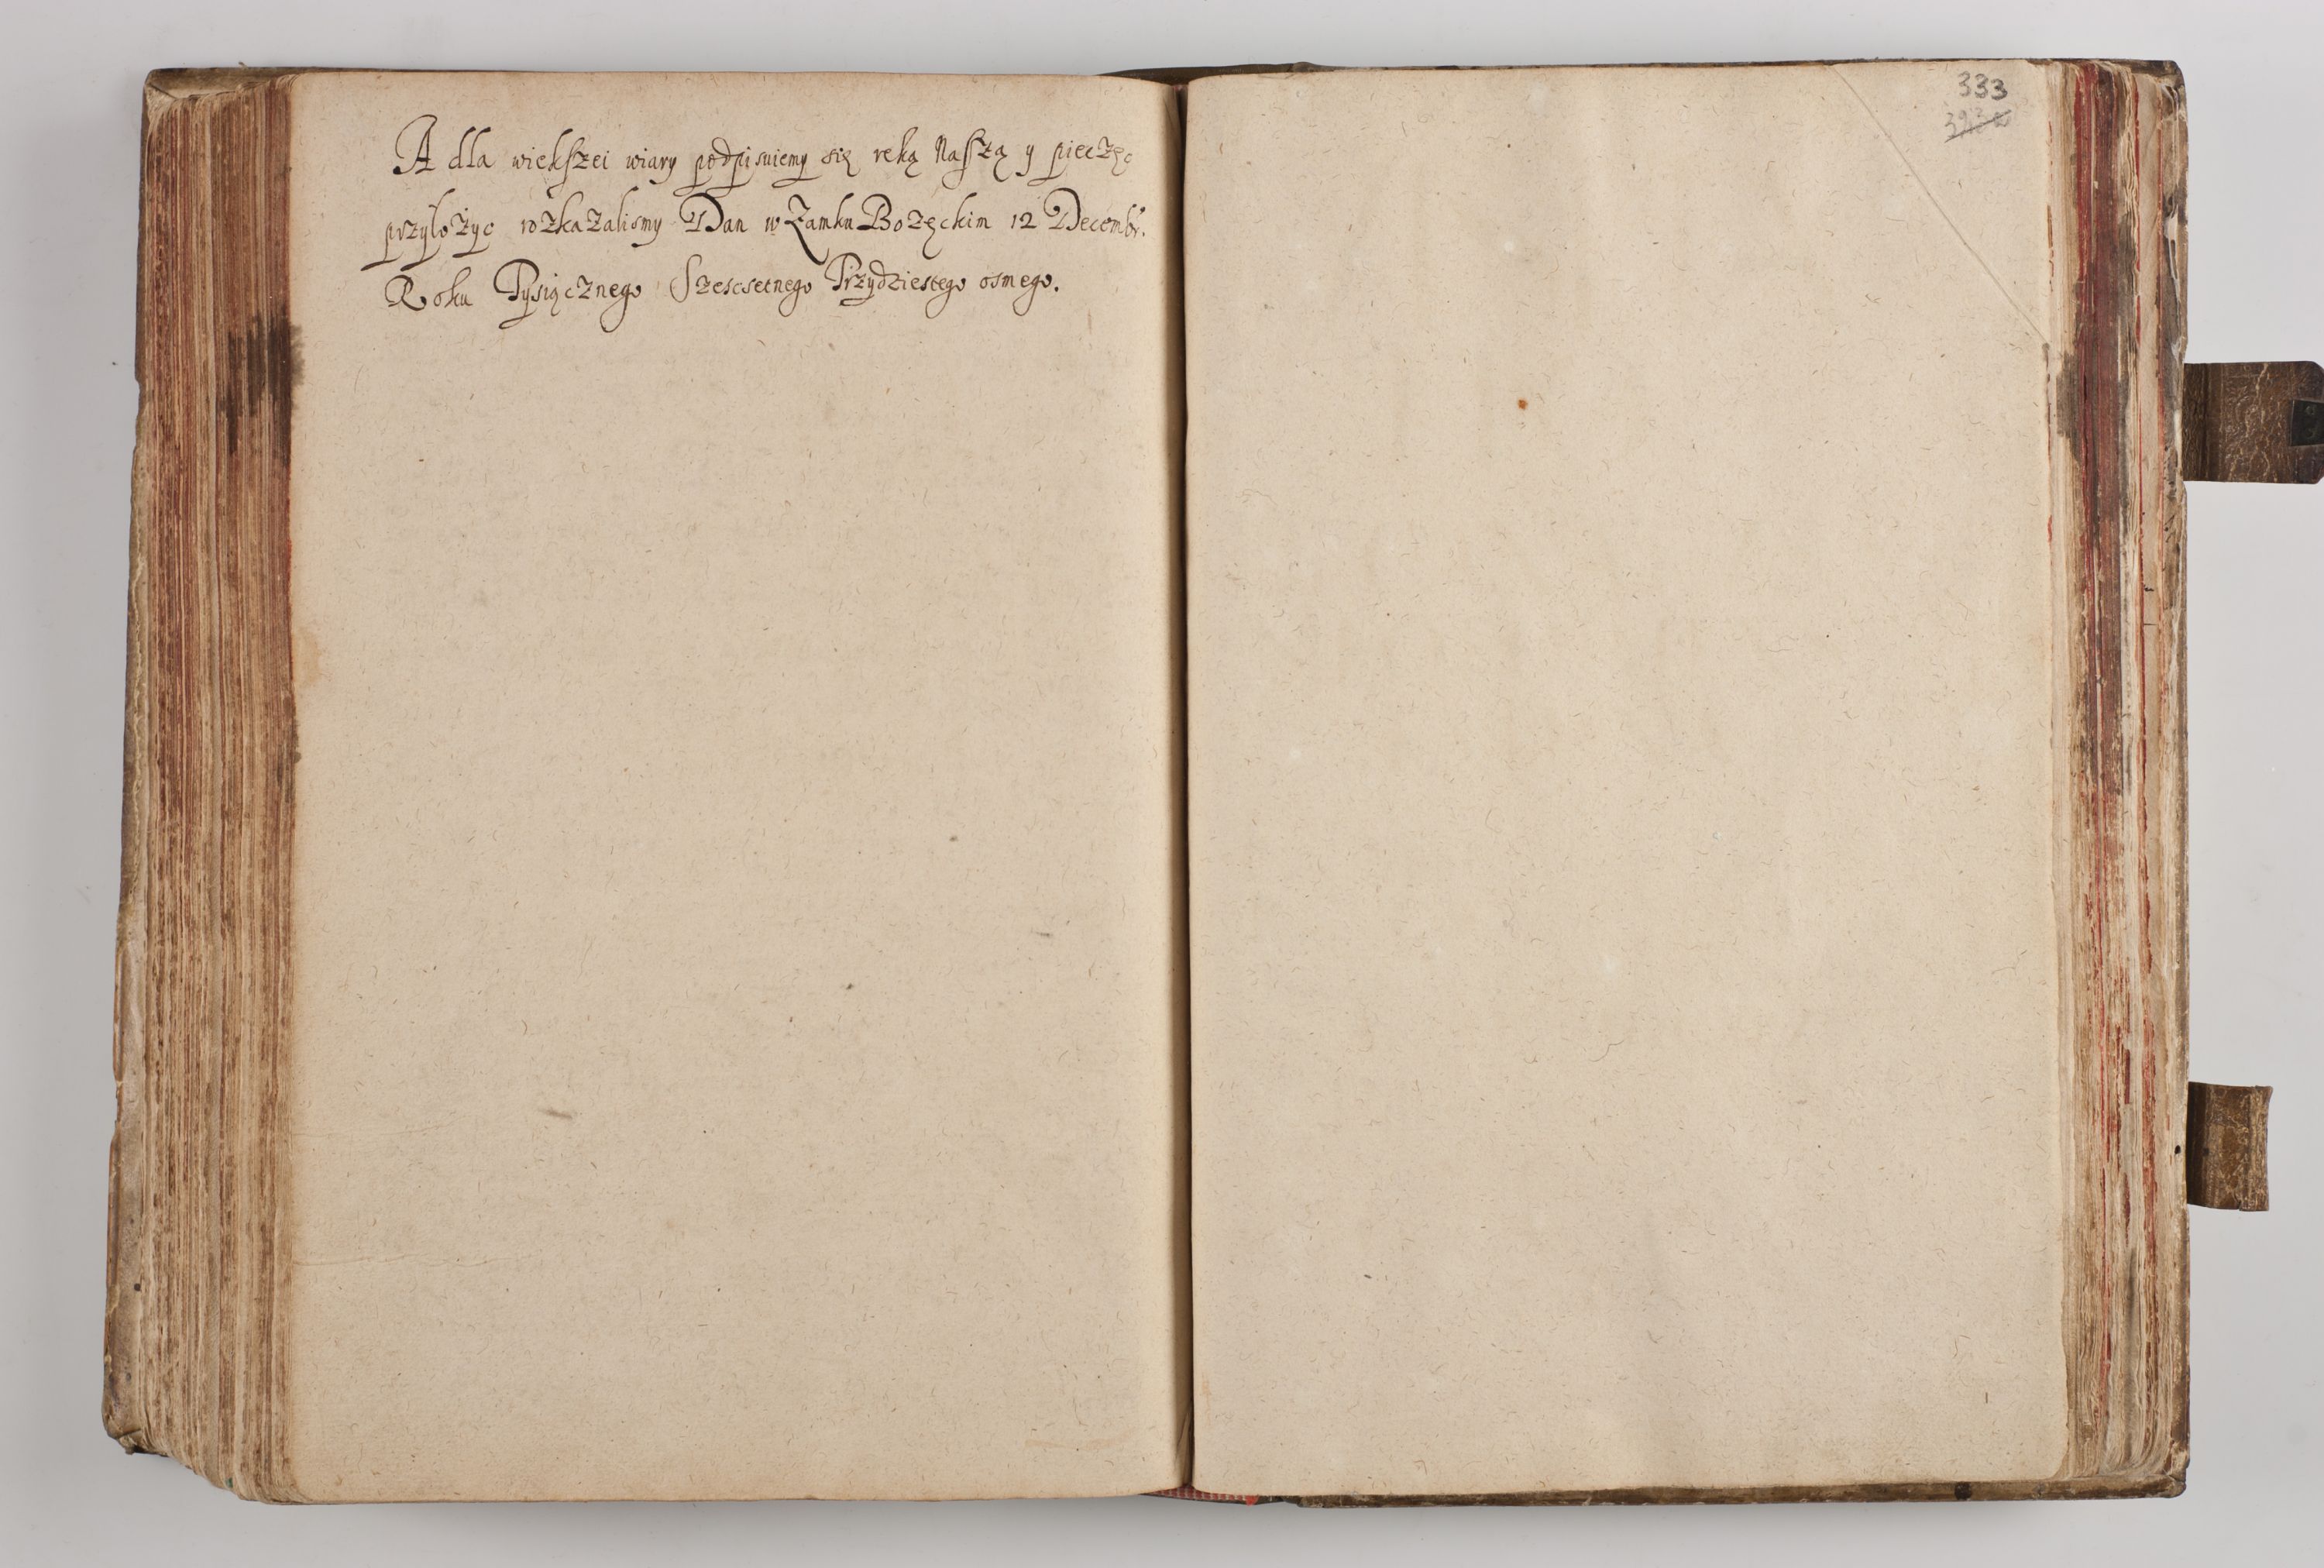 A dla wiekszei wiary podpisuiemy się reką Naszą y pieczęc
przylożyc rozkazalismy Dan w Zamku Bozęckim 12 Decembr.
Roku Tysiącznego Szescsetnego Trzydziestego osmego.
333